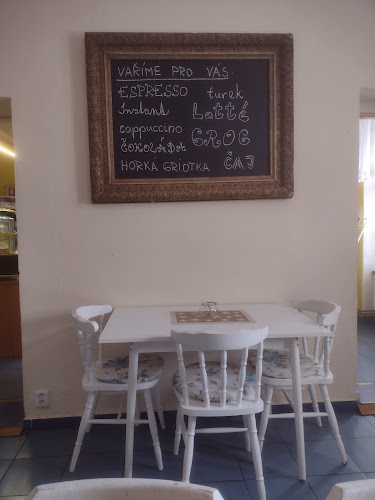 VAŘÍME PRO VÁS:
ESPRESSO turek
Instant Latté
cappuccino GROG
ČOKOLÁDA
HORKÁ GRIOTKA ČAJ